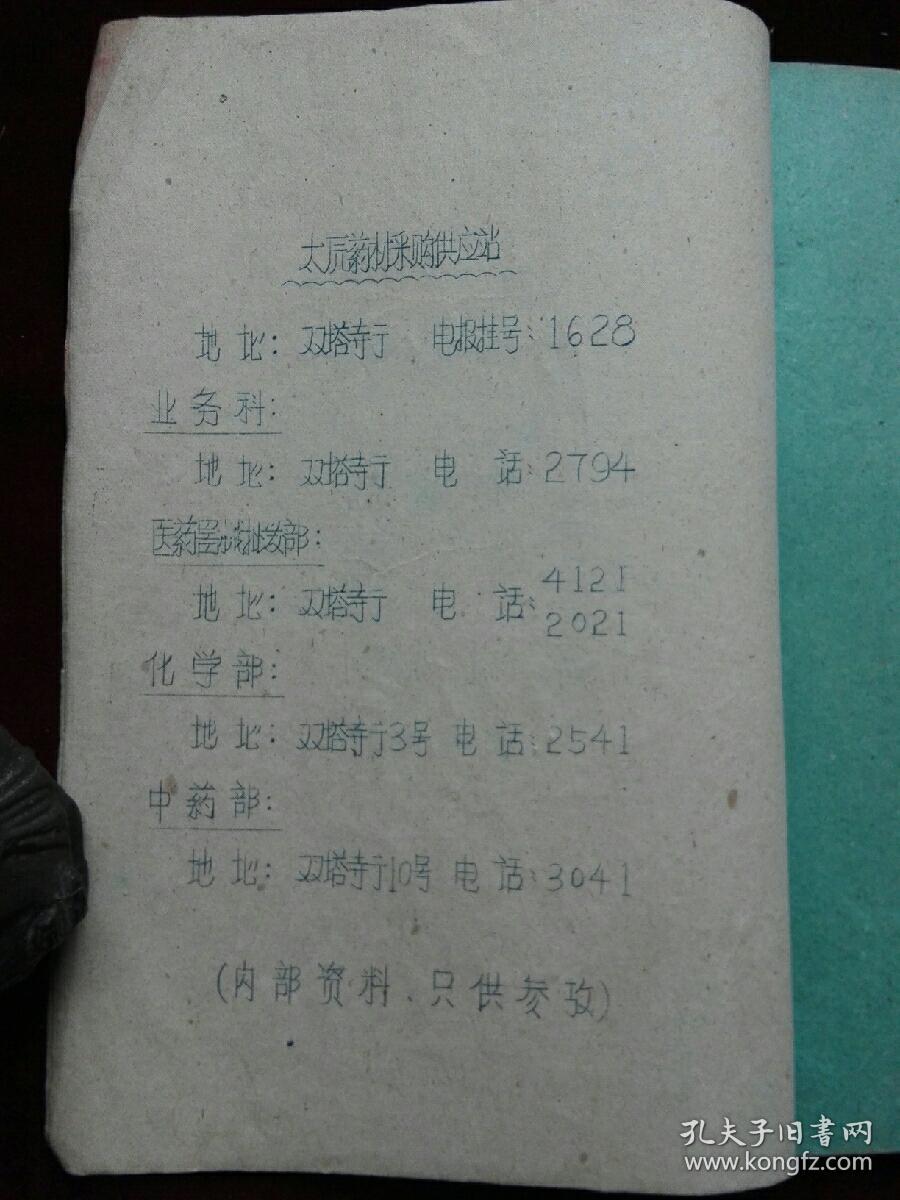 太原药材采购供应站
地址：双塔寺亍 电报挂号：1628
业务科：
地址：双塔寺亍 电话：2794
医药器械批发部：
地址：双塔寺亍 电话：4121
2021
化学部：
地址：双塔寺亍3号 电话：2541
中药部：
地址：双塔寺亍10号 电话：3041
（内部资料、只供参攷）
孔夫子旧書网
www.kongfz.com